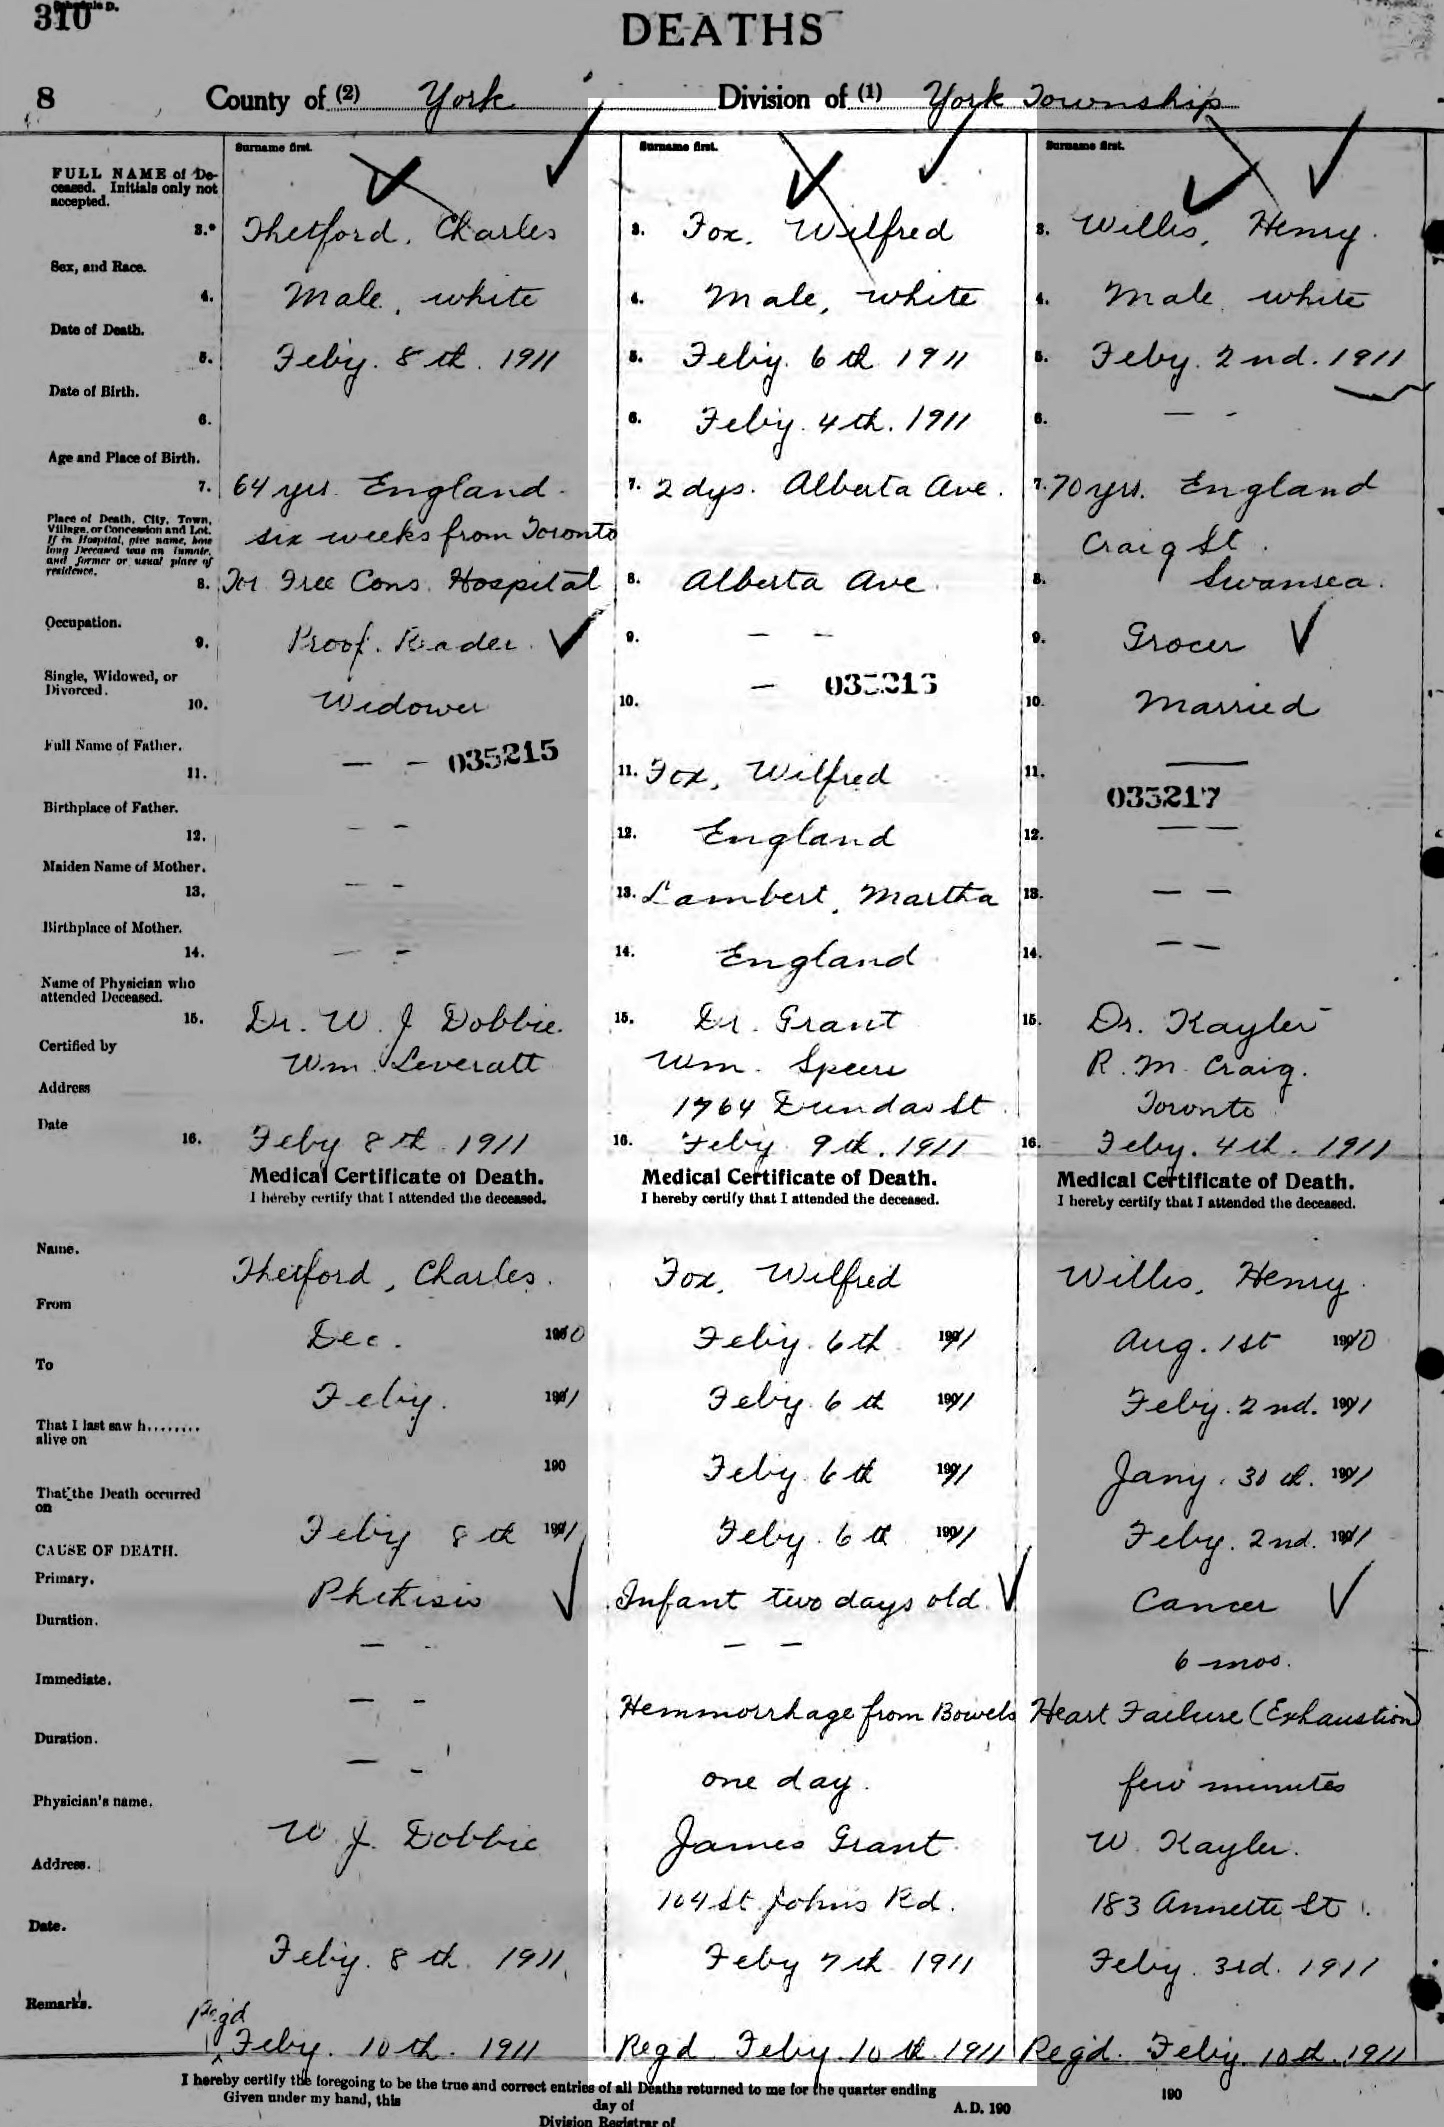 310
Schedule D.
DEATHS
8
County of (2) York
Division of (1) York Township
FULL NAME of De-
ceased. Initials only not
accepted.
3.
Surname first.
Thetford, Charles
Surname first.
3. Fox, Wilfred
Surname first.
3. Willis, Henry.
Sex, and Race.
4. Male, white
4. Male, white
4. Male, white
Date of Death.
5. Feby. 8th. 1911
5. Feby. 6th 1911
5. Feby. 2nd. 1911
Date of Birth.
6.
6. Feby. 4th. 1911
6. — -
Age and Place of Birth.
7. 64 yrs. England.
7. 2 dys. Alberta Ave.
7. 70 yrs. England
Place of Death, City, Town,
Village, or Concession and Lot.
If in Hospital, give name, how
long Deceased was an Inmate,
and former or usual place of
residence.
8. six weeks from Toronto
Tor. Free Cons. Hospital
8. Alberta Ave.
8. Craig St.
Swansea.
Occupation.
9. Proof. Reader.
9. — —
9. Grocer
Single, Widowed, or
Divorced.
10. Widower
10. —
10. Married
Full Name of Father.
11. — - 035215
11. Fox, Wilfred
11. —
035217
Birthplace of Father.
12. — -
12. England
12. — —
Maiden Name of Mother.
13. — -
13. Lambert, Martha
13. — —
Birthplace of Mother.
14. — -
14. England
14. — —
Name of Physician who
attended Deceased.
15. Dr. W. J Dobbie.
15. Dr. Grant
15. Dr. Kayler
Certified by
Wm. Leveratt
Wm. Speers
R. M. Craig.
Address
1764 Dundas St.
Toronto
Date
16. Feby 8th. 1911
16. Feby 9th. 1911
16. Feby. 4th. 1911
Medical Certificate of Death.
I hereby certify that I attended the deceased.
Medical Certificate of Death.
I hereby certify that I attended the deceased.
Medical Certificate of Death.
I hereby certify that I attended the deceased.
Name.
Thetford, Charles.
Fox, Wilfred
Willis, Henry.
From
Dec. 1910
Feby. 6th 1911
Aug. 1st 1910
To
Feby. 1911
Feby. 6th 1911
Feby. 2nd. 1911
That I last saw h........
alive on
190
Feby. 6th 1911
Jany. 30th. 1911
That the Death occurred
on
Feby 8th 1911
Feby. 6th 1911
Feby. 2nd. 1911
CAUSE OF DEATH.
Primary.
Phthisis
Infant two days old.
Cancer
Duration.
— -
— —
6 mos.
Immediate.
— -
Hemmorrhage from Bowels
Heart Failure (Exhaustion)
Duration.
— -
one day.
few minutes
Physician's name.
W. J. Dobbie
James Grant
W. Kayler.
Address.
104 St Johns Rd.
183 Annette St.
Date.
Feby. 8th. 1911.
Feby 7th 1911
Feby. 3rd. 1911
Remarks.
Reg'd
Feby. 10th. 1911
Regd Feby. 10th. 1911
Reg'd. Feby. 10th. 1911
I hereby certify the foregoing to be the true and correct entries of all Deaths returned to me for the quarter ending
190
Given under my hand, this
day of
A.D. 190
Division Registrar of